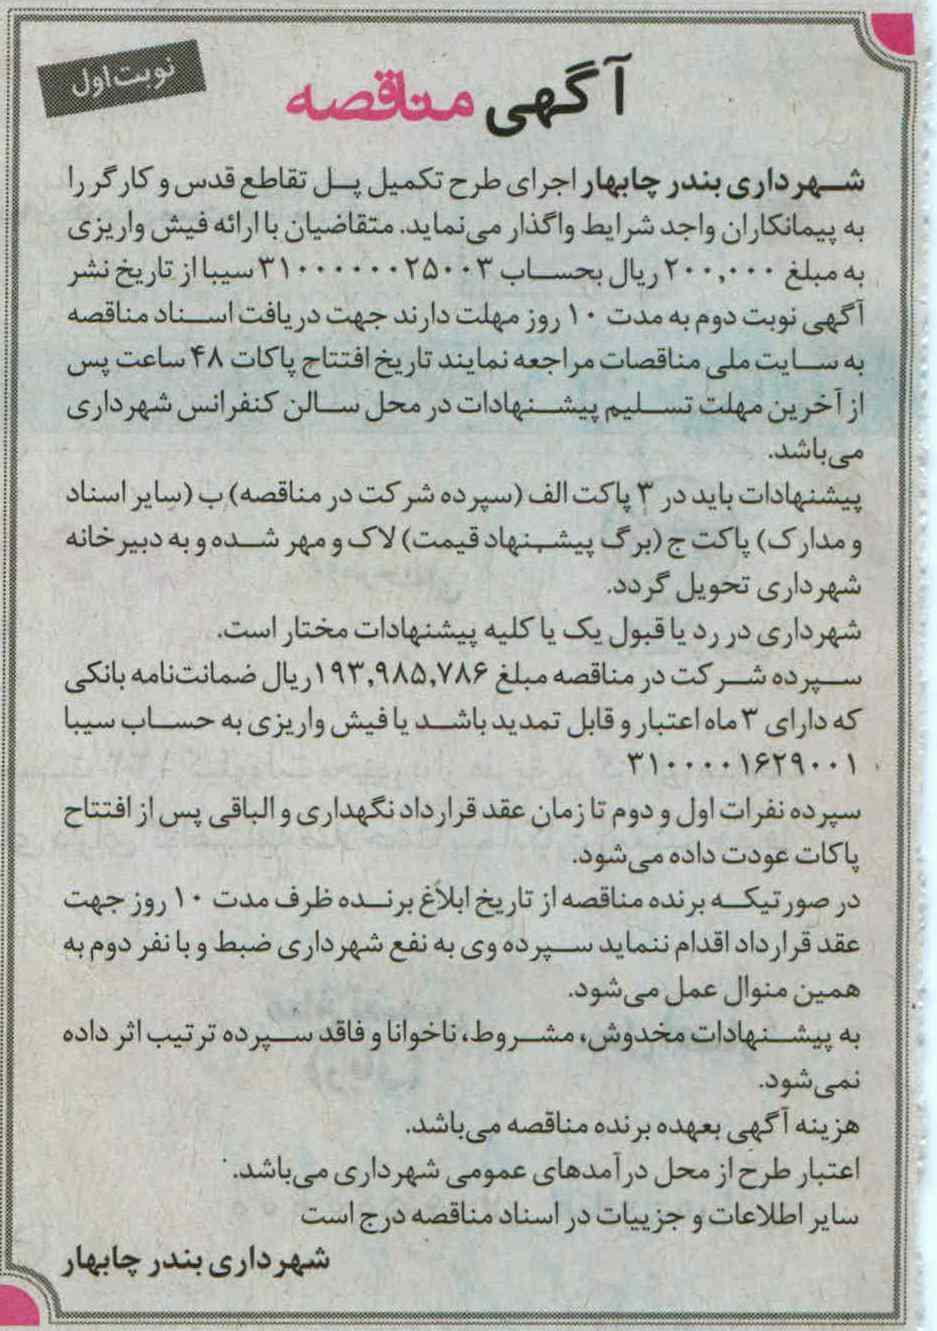 نوبت اول
آگهی مناقصه
شهرداری بندر چابهار اجرای طرح تکمیل پل تقاطع قدس و کارگر را
به پیمانکاران واجد شرایط واگذار می‌نماید. متقاضیان با ارائه فیش واریزی
به مبلغ ۲۰۰,۰۰۰ ریال بحساب ۳۱۰۰۰۰۰۰۲۵۰۰۳ سیبا از تاریخ نشر
آگهی نوبت دوم به مدت ۱۰ روز مهلت دارند جهت دریافت اسناد مناقصه
به سایت ملی مناقصات مراجعه نمایند تاریخ افتتاح پاکات ۴۸ ساعت پس
از آخرین مهلت تسلیم پیشنهادات در محل سالن کنفرانس شهرداری
می‌باشد.
پیشنهادات باید در ۳ پاکت الف (سپرده شرکت در مناقصه) ب (سایر اسناد
و مدارک) پاکت ج (برگ پیشنهاد قیمت) لاک و مهر شده و به دبیرخانه
شهرداری تحویل گردد.
شهرداری در رد یا قبول یک یا کلیه پیشنهادات مختار است.
سپرده شرکت در مناقصه مبلغ ۱۹۳,۹۸۵,۷۸۶ ریال ضمانت‌نامه بانکی
که دارای ۳ ماه اعتبار و قابل تمدید باشد یا فیش واریزی به حساب سیبا
۳۱۰۰۰۰۱۶۲۹۰۰۱
سپرده نفرات اول و دوم تا زمان عقد قرارداد نگهداری و الباقی پس از افتتاح
پاکات عودت داده می‌شود.
در صورتیکه برنده مناقصه از تاریخ ابلاغ برنده ظرف مدت ۱۰ روز جهت
عقد قرارداد اقدام ننماید سپرده وی به نفع شهرداری ضبط و با نفر دوم به
همین منوال عمل می‌شود.
به پیشنهادات مخدوش، مشروط، ناخوانا و فاقد سپرده ترتیب اثر داده
نمی‌شود.
هزینه آگهی بعهده برنده مناقصه می‌باشد.
اعتبار طرح از محل درآمدهای عمومی شهرداری می‌باشد.
سایر اطلاعات و جزییات در اسناد مناقصه درج است
شهرداری بندر چابهار